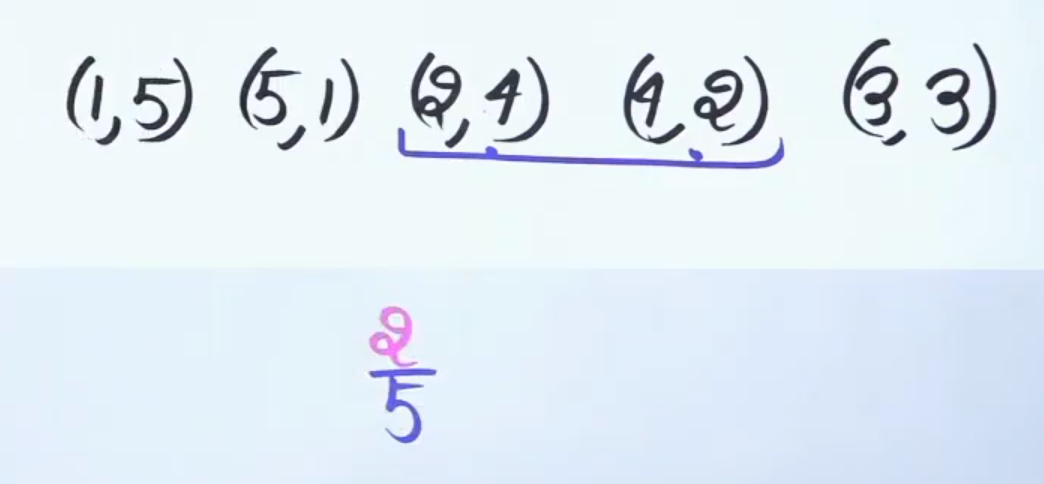 (1,5) (5,1) (2,4) (4,2) (3,3)
2
5